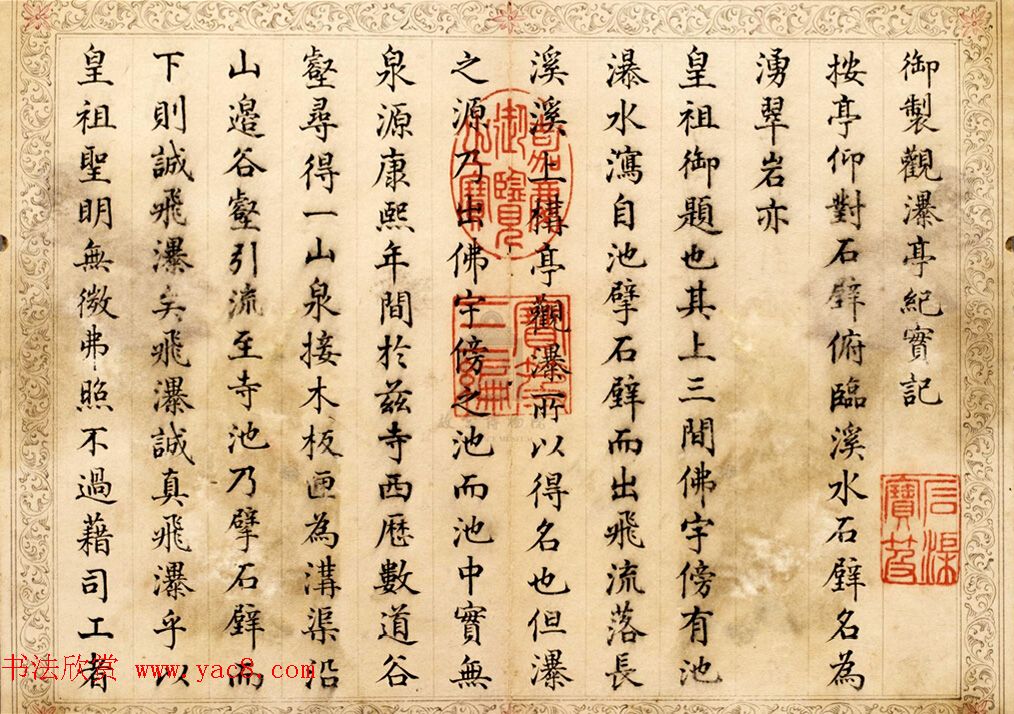 御製觀瀑亭紀實記
按亭仰對石壁俯臨溪水石壁名為
湧翠岩亦
皇祖御題也其上三間佛宇傍有池
瀑水瀉自池擘石壁而出飛流落長
溪溪上構亭觀瀑所以得名也但瀑
之源乃出佛宇傍之池而池中實無
泉源康熙年間於茲寺西歷數道谷
壑尋得一山泉接木板匣為溝渠沿
山邉谷壑引流至寺池乃擘石壁而
下則誠飛瀑矣飛瀑誠真飛瀑乎以
皇祖聖明無微弗照不過藉司工者
石渠寶笈
寶笈三編
嘉慶御覽之寶
书法欣赏 www.yac8.com